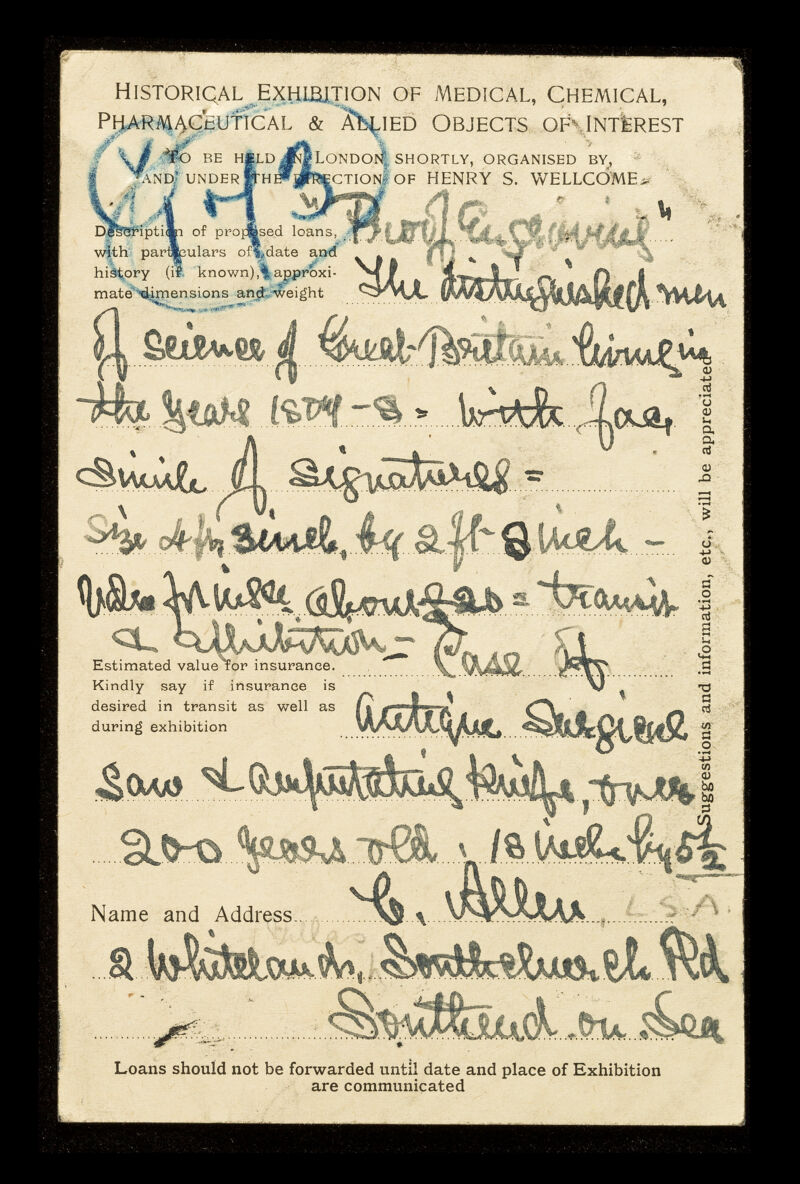 HISTORICAL EXHIBITION OF MEDICAL, CHEMICAL,
PHARMACEUTICAL & ALLIED OBJECTS OF INTEREST
TO BE HELD IN LONDON SHORTLY, ORGANISED BY,
AND UNDER THE DIRECTION OF HENRY S. WELLCOME.
Description of proposed loans,
with particulars of date and
history (if known), approxi-
mate dimensions and weight
"Proof Engraving"
The distinguished men
of Science of Great Britain living in
the years 1807-8 = With fac,
simile of Signatures =
Size 4 ft, 3 inch, by 2 ft 8 inch -
about £20 = transit
& exhibition -
Estimated value for insurance.
Kindly say if insurance is
desired in transit as well as
during exhibition
Case of
Antique Surgical
Saw & amputating Knife, over
200 years old, 18 inch by 5 1/2
Name and Address
C. Allen, LSA.
2 Whitelands, Southchurch Rd
Southend on Sea
Loans should not be forwarded until date and place of Exhibition
are communicated
Suggestions and information, etc., will be appreciated